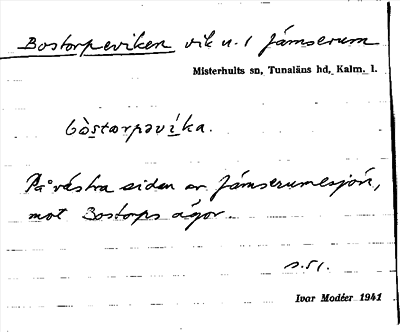 Bostorpeviken vik n. 1 Jämserum
Misterhults sn, Tunaläns hd, Kalm. l.
bòstorpəvíka.
På västra sidan av Jämserumesjön,
mot Bostorps ägor
s. 51.
Ivar Modéer 1941